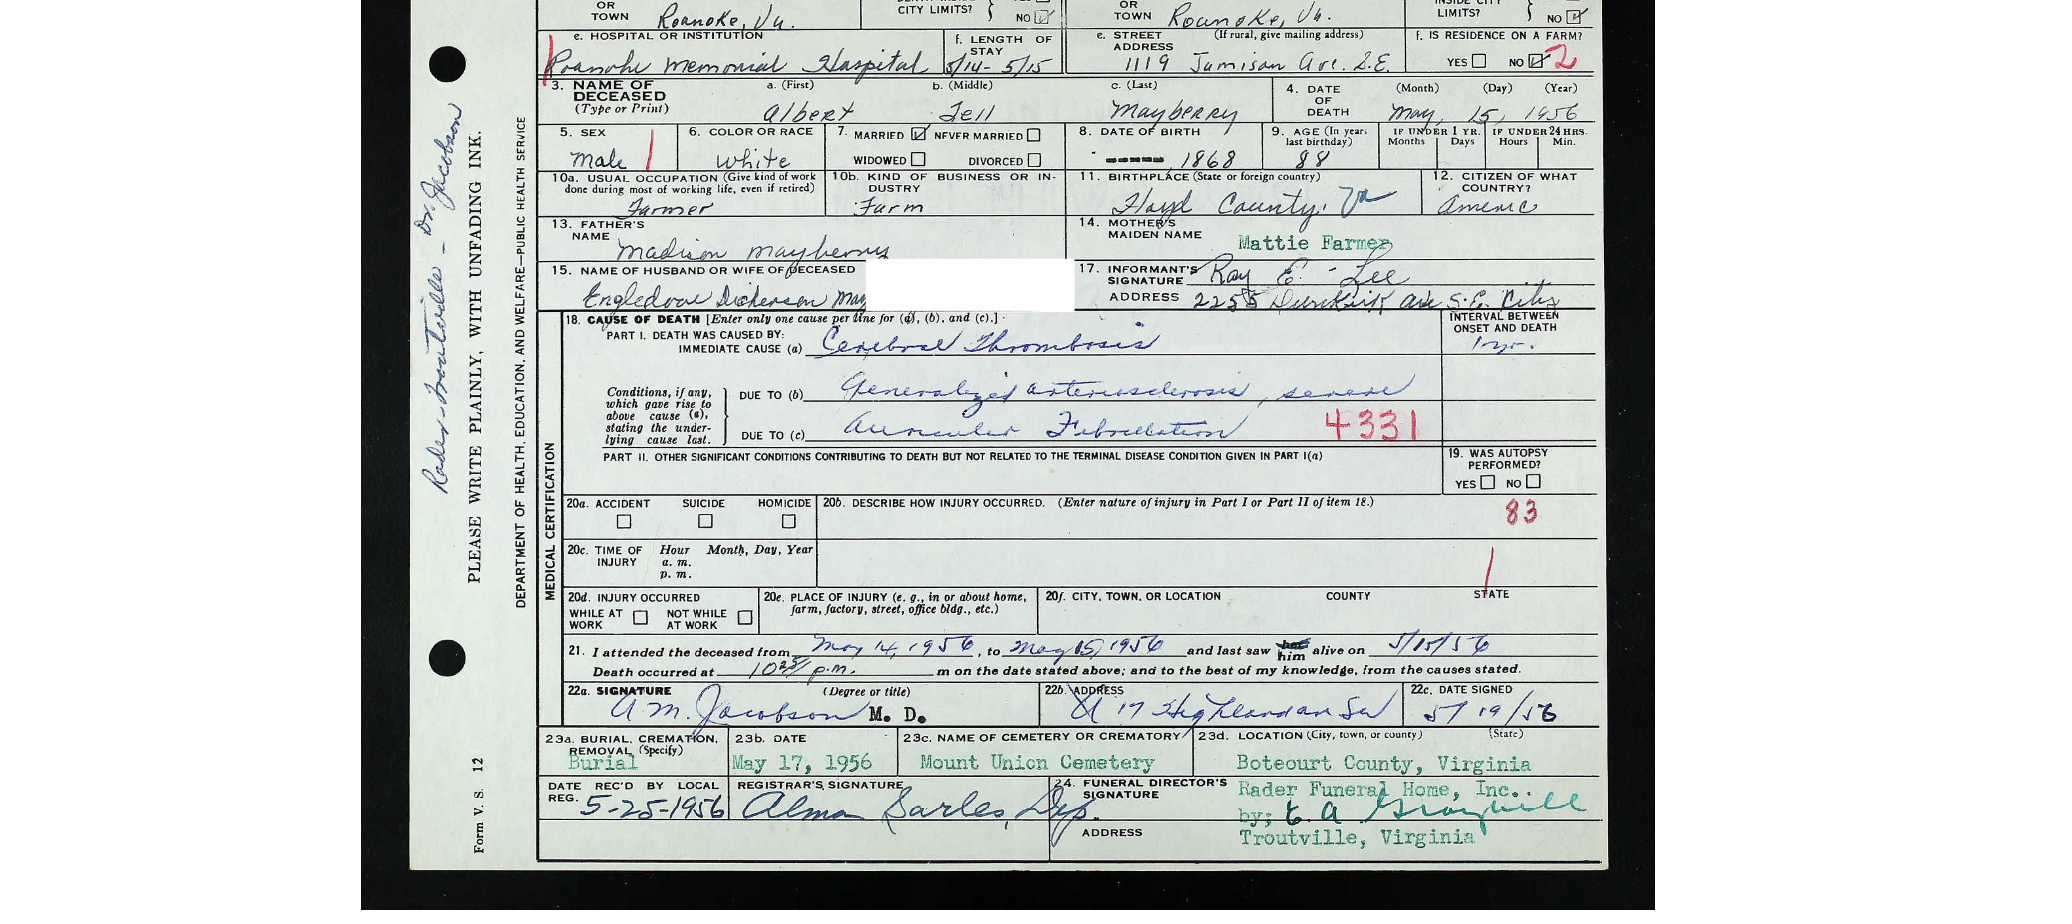 OR
TOWN Roanoke, Va.
CITY LIMITS? NO
OR
TOWN Roanoke, Va.
INSIDE CITY
LIMITS? NO
e. HOSPITAL OR INSTITUTION
Roanoke Memorial Hospital
f. LENGTH OF
STAY
5/14- 5/15
e. STREET (If rural, give mailing address)
ADDRESS
1119 Jamison Ave. S.E.
f. IS RESIDENCE ON A FARM?
YES NO 2
3. NAME OF
DECEASED
(Type or Print)
a. (First) b. (Middle) c. (Last)
Albert Tell Mayberry
4. DATE
OF
DEATH
(Month) (Day) (Year)
May, 15, 1956
5. SEX
Male
6. COLOR OR RACE
White
7. MARRIED NEVER MARRIED
WIDOWED DIVORCED
8. DATE OF BIRTH
1868
9. AGE (In years
last birthday)
88
IF UNDER 1 YR. IF UNDER 24 HRS.
Months Days Hours Min.
10a. USUAL OCCUPATION (Give kind of work
done during most of working life, even if retired)
Farmer
10b. KIND OF BUSINESS OR IN-
DUSTRY
Farm
11. BIRTHPLACE (State or foreign country)
Floyd County, Va
12. CITIZEN OF WHAT
COUNTRY?
Americ
13. FATHER'S
NAME
Madison Mayberry
14. MOTHER'S
MAIDEN NAME Mattie Farmer
15. NAME OF HUSBAND OR WIFE OF DECEASED
Dickerson May
17. INFORMANT'S
SIGNATURE Ray E. Lee
ADDRESS 2255 Ave S.E. City
18. CAUSE OF DEATH [Enter only one cause per line for (a), (b), and (c).]
INTERVAL BETWEEN
ONSET AND DEATH
PART I. DEATH WAS CAUSED BY:
IMMEDIATE CAUSE (a) Cerebral Thrombosis 1 yr.
Conditions, if any,
which gave rise to
above cause (a),
stating the under-
lying cause last.
DUE TO (b) Generalized arteriosclerosis, severe
DUE TO (c) Auricular Fibrillation 4331
PART II. OTHER SIGNIFICANT CONDITIONS CONTRIBUTING TO DEATH BUT NOT RELATED TO THE TERMINAL DISEASE CONDITION GIVEN IN PART I(a)
19. WAS AUTOPSY
PERFORMED?
YES NO
20a. ACCIDENT SUICIDE HOMICIDE
20b. DESCRIBE HOW INJURY OCCURRED. (Enter nature of injury in Part I or Part II of item 18.)
83
20c. TIME OF
INJURY
Hour Month, Day, Year
a. m.
p. m.
20d. INJURY OCCURRED
WHILE AT
WORK
NOT WHILE
AT WORK
20e. PLACE OF INJURY (e. g., in or about home,
farm, factory, street, office bldg., etc.)
20f. CITY, TOWN, OR LOCATION COUNTY STATE
21. I attended the deceased from May 14, 1956, to May 15, 1956 and last saw him alive on 5/15/56
Death occurred at 10 25/ p.m. m on the date stated above; and to the best of my knowledge, from the causes stated.
22a. SIGNATURE (Degree or title)
A.M. Jacobson M. D.
22b. ADDRESS
17 Highland Ave
22c. DATE SIGNED
5/19/56
23a. BURIAL, CREMATION,
REMOVAL (Specify)
Burial
23b. DATE
May 17, 1956
23c. NAME OF CEMETERY OR CREMATORY
Mount Union Cemetery
23d. LOCATION (City, town, or county) (State)
Boteourt County, Virginia
DATE REC'D BY LOCAL
REG. 5-25-1956
REGISTRAR'S SIGNATURE
Alma Sarles, Dep.
24. FUNERAL DIRECTOR'S
SIGNATURE
Rader Funeral Home, Inc..
by;
ADDRESS
Troutville, Virginia
Rader-Troutville - Dr. Jacobson
PLEASE WRITE PLAINLY, WITH UNFADING INK.
DEPARTMENT OF HEALTH, EDUCATION, AND WELFARE—PUBLIC HEALTH SERVICE
MEDICAL CERTIFICATION
Form V. S. 12